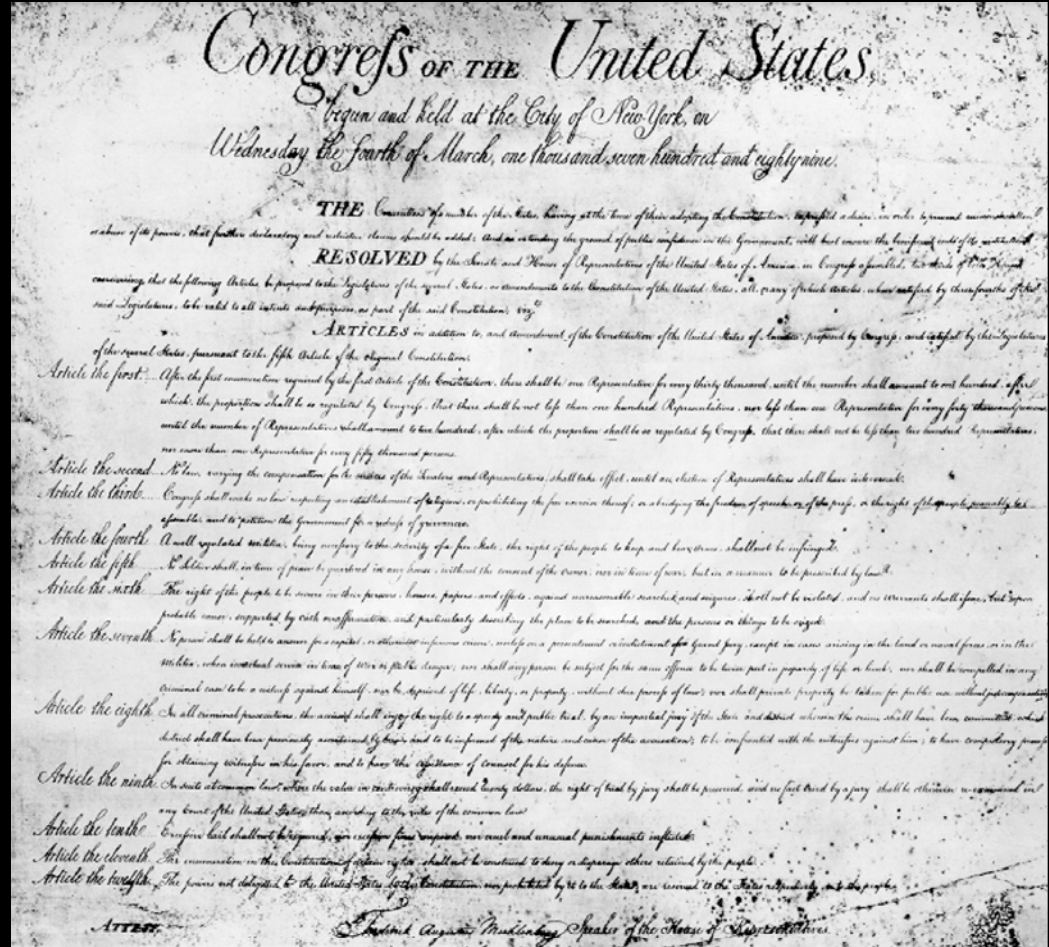 Congreſs OF THE United States,
begun and held at the City of New-York, on
Wednesday the fourth of March, one thousand seven hundred and eighty nine.
THE Conventions of a number of the States, having at the time of their adopting the Constitution, expreſsed a desire, in order to prevent misconstruction
or abuse of its powers, that further declaratory and restrictive clauses should be added: And as extending the ground of public confidence in the Government, will best ensure the beneficent ends of its institution
RESOLVED by the Senate and House of Representatives of the United States of America, in Congreſs aſsembled, two thirds of both Houses
concurring, that the following Articles be proposed to the Legislatures of the several States, as amendments to the Constitution of the United States, all, or any of which Articles, when ratified by three fourths of the
said Legislatures, to be valid to all intents and purposes, as part of the said Constitution; viz.t
ARTICLES in addition to, and Amendment of the Constitution of the United States of America, proposed by Congreſs, and ratified by the Legislatures
of the several States, pursuant to the fifth Article of the original Constitution.
Article the first.... After the first enumeration required by the first Article of the Constitution, there shall be one Representative for every thirty thousand, until the number shall amount to one hundred, after
which, the proportion shall be so regulated by Congreſs, that there shall be not leſs than one hundred Representatives, nor leſs than one Representative for every forty thousand persons,
until the number of Representatives shall amount to two hundred, after which the proportion shall be so regulated by Congreſs, that there shall not be leſs than two hundred Representatives,
nor more than one Representative for every fifty thousand persons.
Article the second... No law, varying the compensation for the services of the Senators and Representatives, shall take effect, until an election of Representatives shall have intervened.
Article the third..... Congreſs shall make no law respecting an establishment of religion, or prohibiting the free exercise thereof; or abridging the freedom of speech, or of the preſs, or the right of the people peaceably to
aſsemble, and to petition the Government for a redreſs of grievances.
Article the fourth.. A well regulated militia, being neceſsary to the security of a free State, the right of the people to keep and bear arms, shall not be infringed.
Article the fifth..... No Soldier shall, in time of peace be quartered in any house, without the consent of the owner, nor in time of war, but in a manner to be prescribed by law.
Article the sixth... The right of the people to be secure in their persons, houses, papers, and effects, against unreasonable searches and seizures, shall not be violated, and no warrants shall iſsue, but upon
probable cause, supported by oath or affirmation, and particularly describing the place to be searched, and the persons or things to be seized.
Article the seventh. No person shall be held to answer for a capital, or otherwise infamous crime, unleſs on a presentment or indictment of a Grand Jury, except in cases arising in the land or naval forces, or in the
Militia, when in actual service in time of War or public danger; nor shall any person be subject for the same offence to be twice put in jeopardy of life or limb, nor shall be compelled in any
criminal case to be a witneſs against himself, nor be deprived of life, liberty, or property, without due proceſs of law; nor shall private property be taken for public use without just compensation
Article the eighth. In all criminal prosecutions, the accused shall enjoy the right to a speedy and public trial, by an impartial jury of the State and district wherein the crime shall have been committed, which
district shall have been previously ascertained by law, and to be informed of the nature and cause of the accusation; to be confronted with the witneſses against him; to have compulsory proceſs
for obtaining witneſses in his favor, and to have the aſsistance of counsel for his defence.
Article the ninth. In suits at common law, where the value in controversy shall exceed twenty dollars, the right of trial by jury shall be preserved, and no fact tried by a jury shall be otherwise re-examined in
any Court of the United States, than according to the rules of the common law.
Article the tenth.. Exceſsive bail shall not be required, nor exceſsive fines imposed, nor cruel and unusual punishments inflicted.
Article the eleventh. The enumeration in the Constitution, of certain rights, shall not be construed to deny or disparage others retained by the people.
Article the twelfth. The powers not delegated to the United States by the Constitution, nor prohibited by it to the States, are reserved to the States respectively, or to the people.
ATTEST, Frederick Augustus Muhlenberg Speaker of the House of Representatives